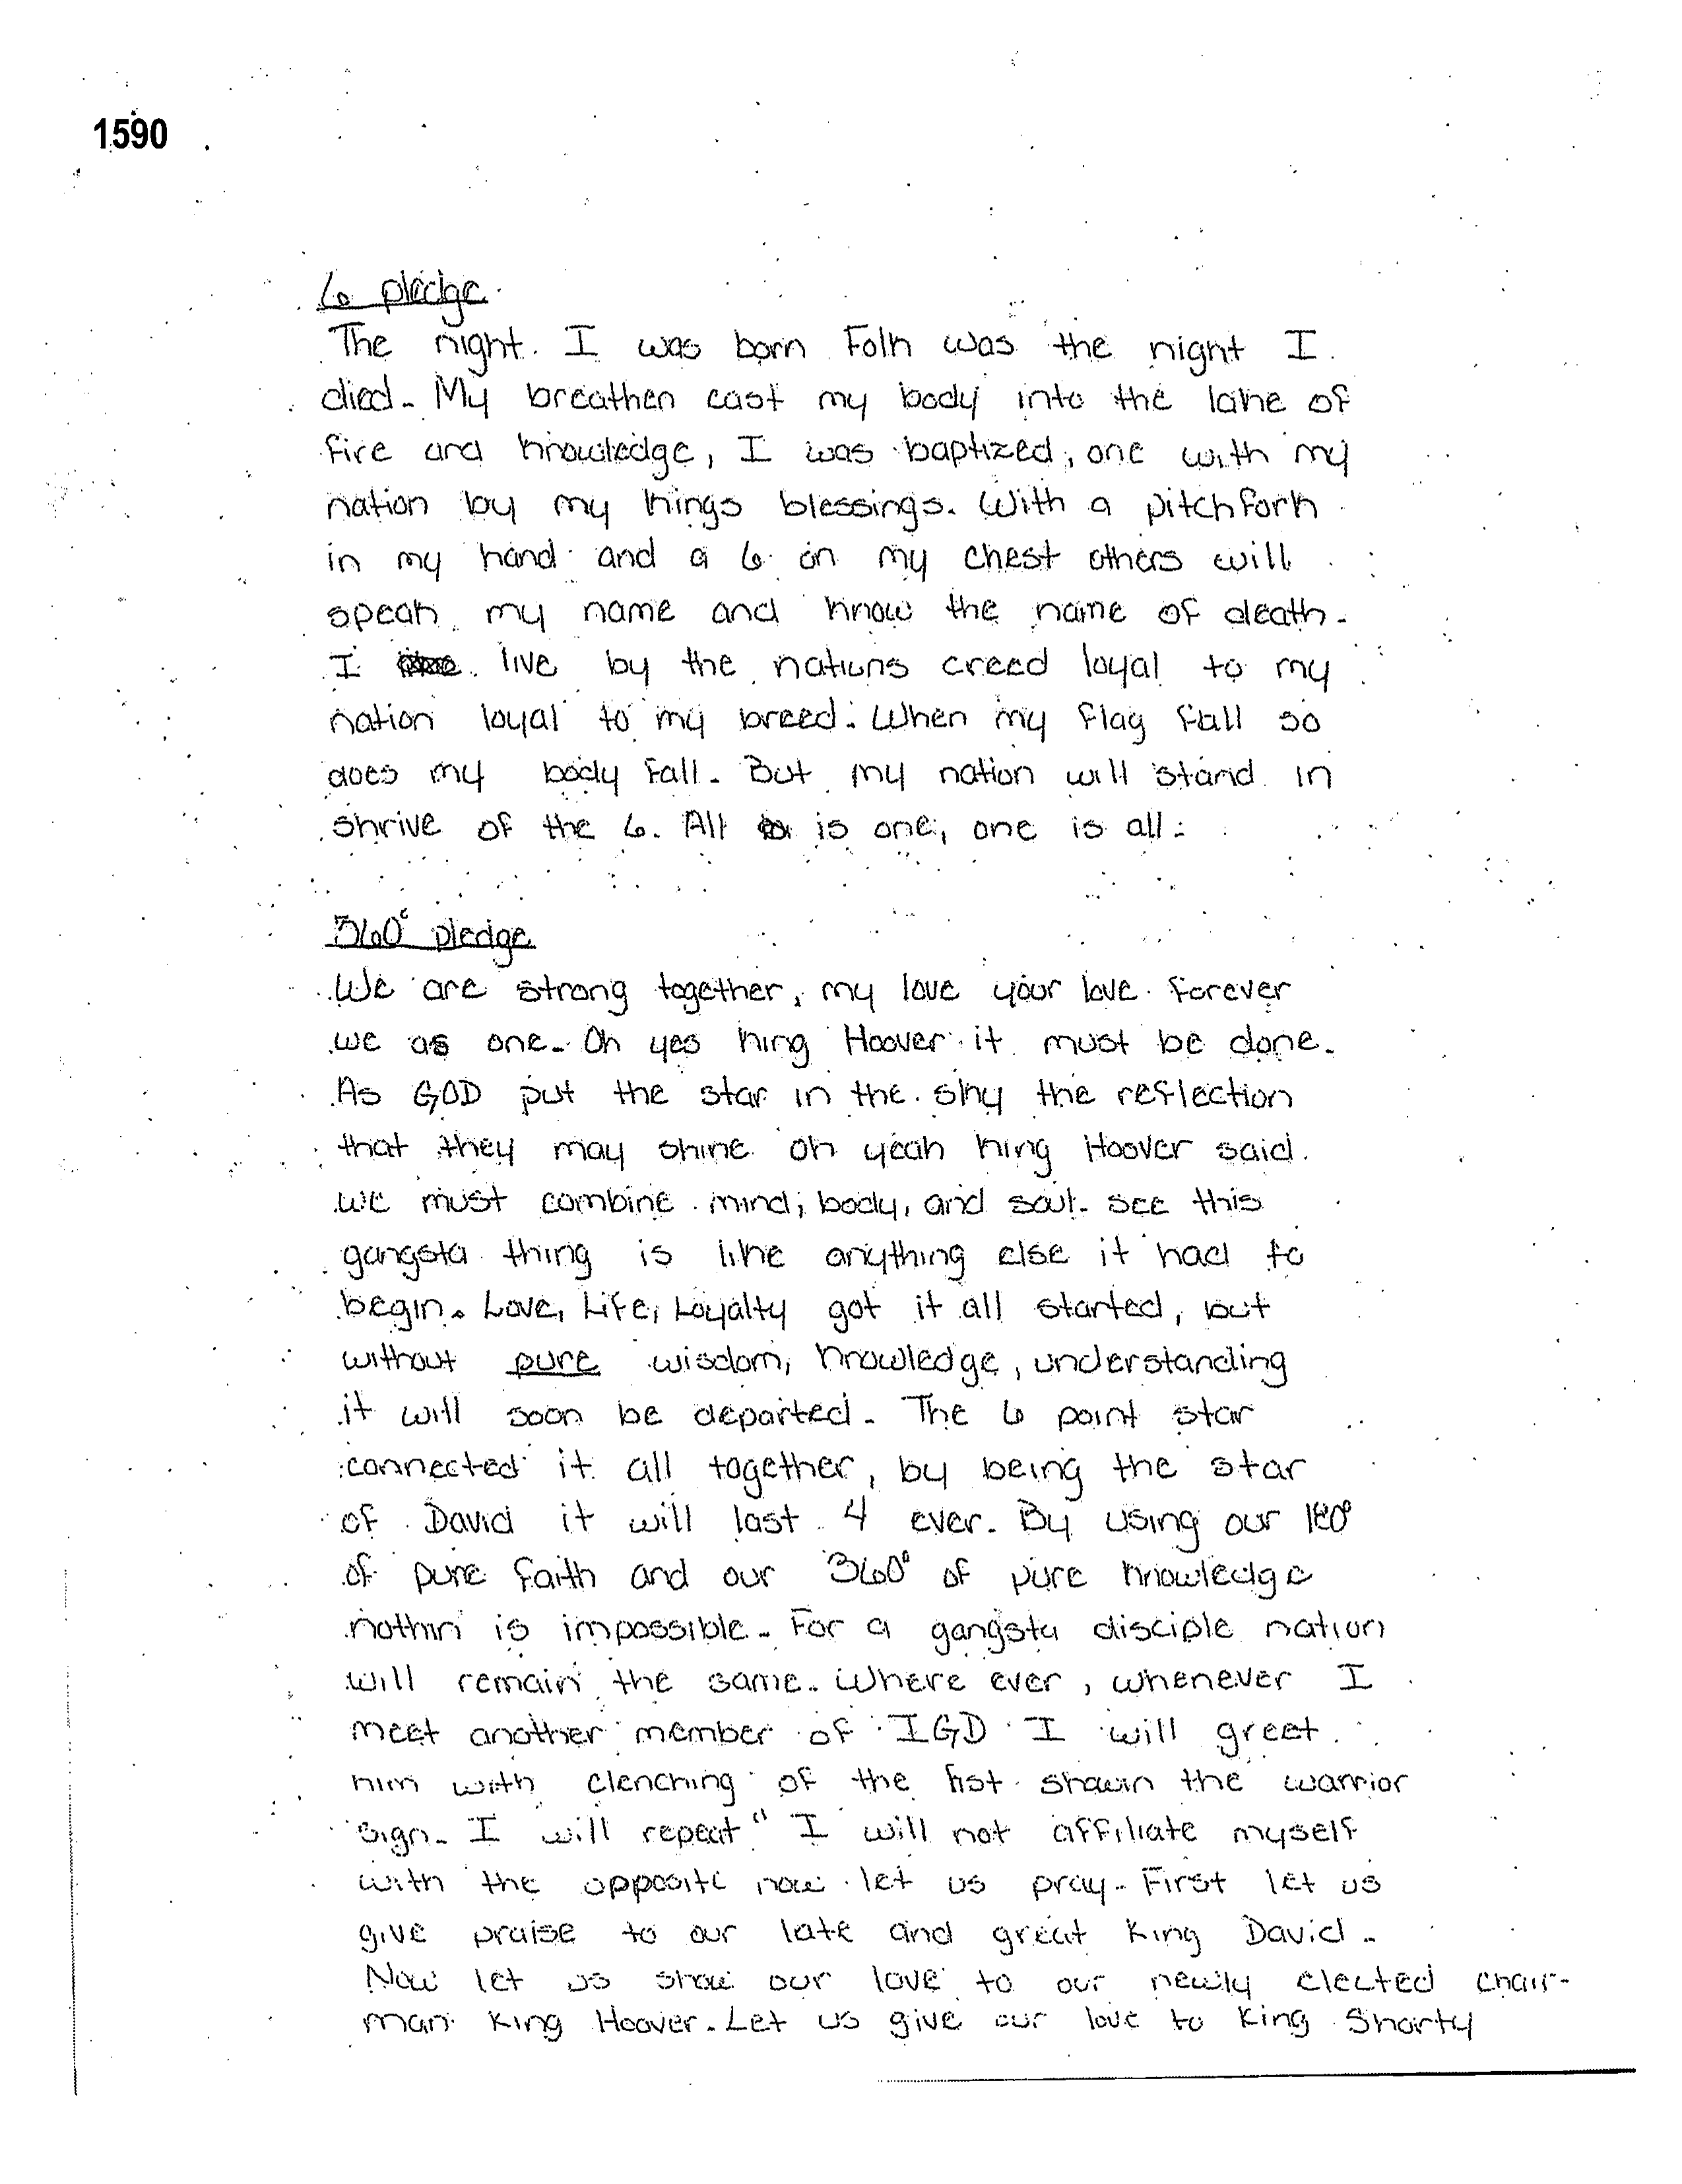 1590
6 pledge
The night I was born Folk was the night I
died. My breathen cast my body into the lake of
fire and knowledge, I was baptized, one with my
nation by my kings blessings. With a pitchfork
in my hand and a 6 on my chest others will
speak my name and know the name of death.
I live by the nations creed loyal to my
nation loyal to my breed. When my flag fall so
does my body fall. But my nation will stand in
shrive of the 6. All is one, one is all.
360° pledge
We are strong together, my love your love forever
we as one. Oh yes king Hoover it must be done.
As GOD put the star in the sky the reflection
that they may shine oh yeah king Hoover said
we must combine mind, body, and soul. see this
gangsta thing is like anything else it had to
begin. Love, Life, Loyalty got it all started, but
without pure wisdom, knowledge, understanding
it will soon be departed. The 6 point star
connected it all together, by being the star
of David it will last 4 ever. By using our 180°
of pure faith and our 360° of pure knowledge
nothin is impossible. For a gangsta disciple nation
will remain the same. Where ever, whenever I
meet another member of IGD I will greet
him with clenching of the fist shawn the warrior
sign. I will repeat " I will not affiliate myself
with the opposite now let us pray. First let us
give praise to our late and great King David.
Now let us show our love to our newly elected chair-
man King Hoover. Let us give our love to King Shorty